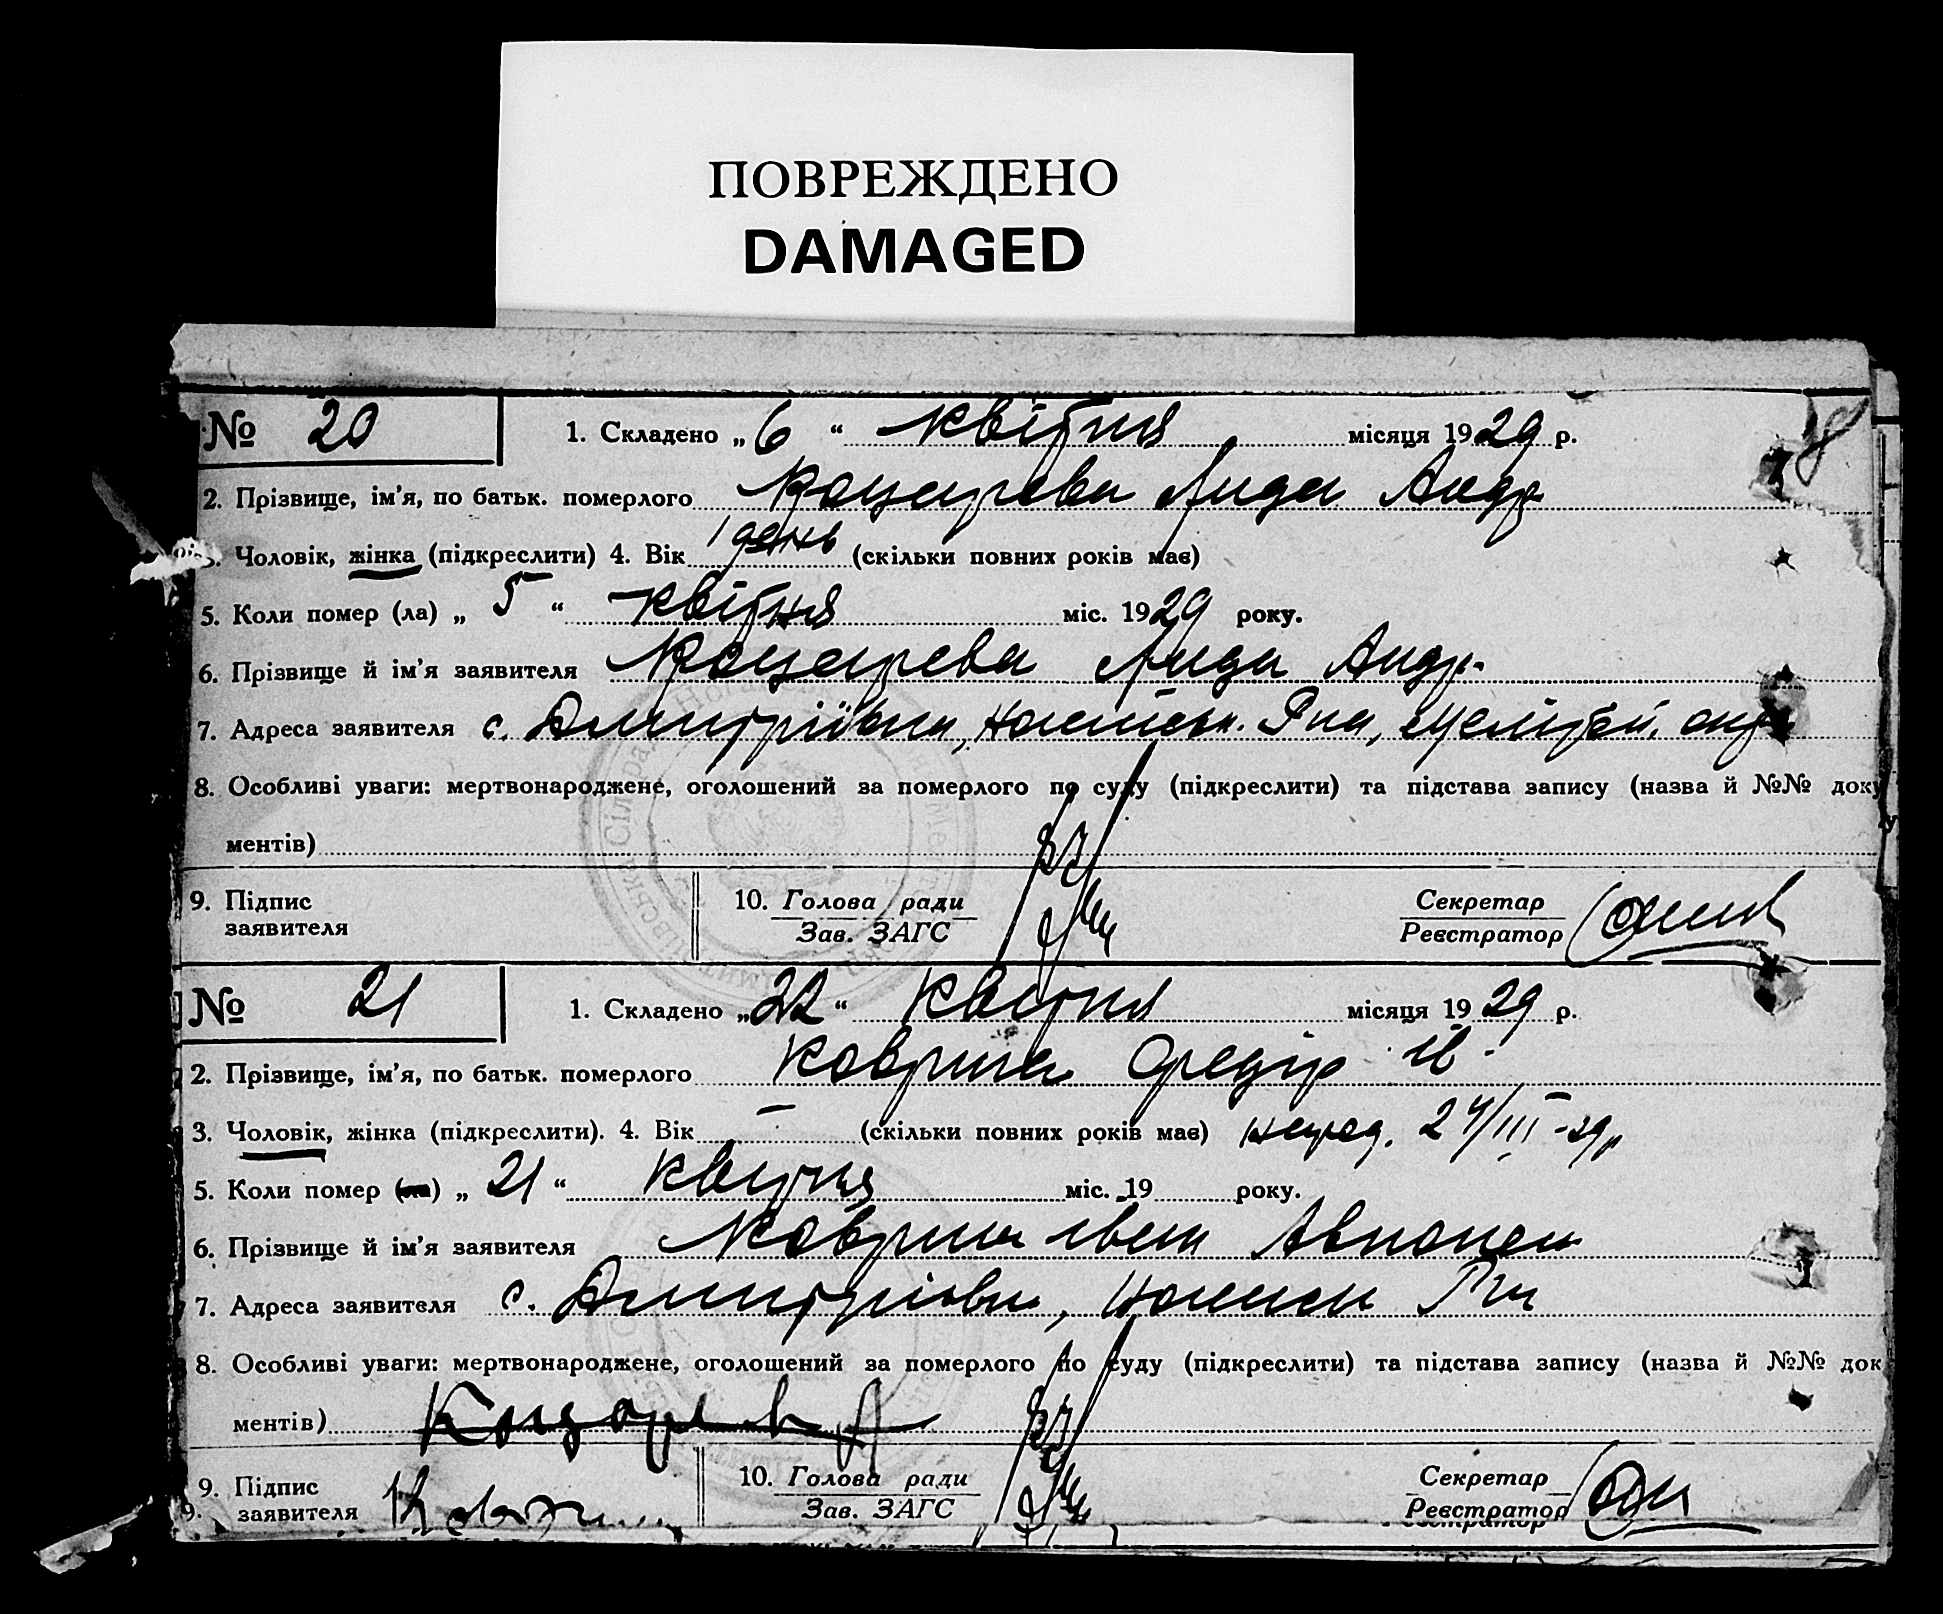 ПОВРЕЖДЕНО
DAMAGED
№ 20 1. Складено „ 6 “ квітня місяця 1929 р.
2. Прізвище, ім'я, по батьк. померлого Коцарева Лида Андр
Чоловік, жінка (підкреслити) 4. Вік 1 день (скільки повних років має)
5. Коли помер (ла) „ 5 “ квітня міс. 1929 року.
6. Прізвище й ім'я заявителя Коцарева Лида Андр.
7. Адреса заявителя с. Дмитрівка,
8. Особливі уваги: мертвонароджене, оголошений за померлого по суду (підкреслити) та підстава запису (назва й №№ доку
ментів)
9. Підпис заявителя 10. Голова ради Зав. ЗАГС Секретар Реєстратор
№ 21 1. Складено „22“ Квітня місяця 1929 р.
2. Прізвище, ім'я, по батьк. померлого Коврига Федір Ів.
3. Чоловік, жінка (підкреслити). 4. Вік — (скільки повних років має) 24/III-29р
5. Коли помер (ла) „ 21 “ Квітня міс. 19 року.
6. Прізвище й ім'я заявителя Коврига Іван
7. Адреса заявителя с. Дмитрівка,
8. Особливі уваги: мертвонароджене, оголошений за померлого по суду (підкреслити) та підстава запису (назва й №№ док
ментів)
9. Підпис заявителя 10. Голова ради Зав. ЗАГС Секретар Реєстратор